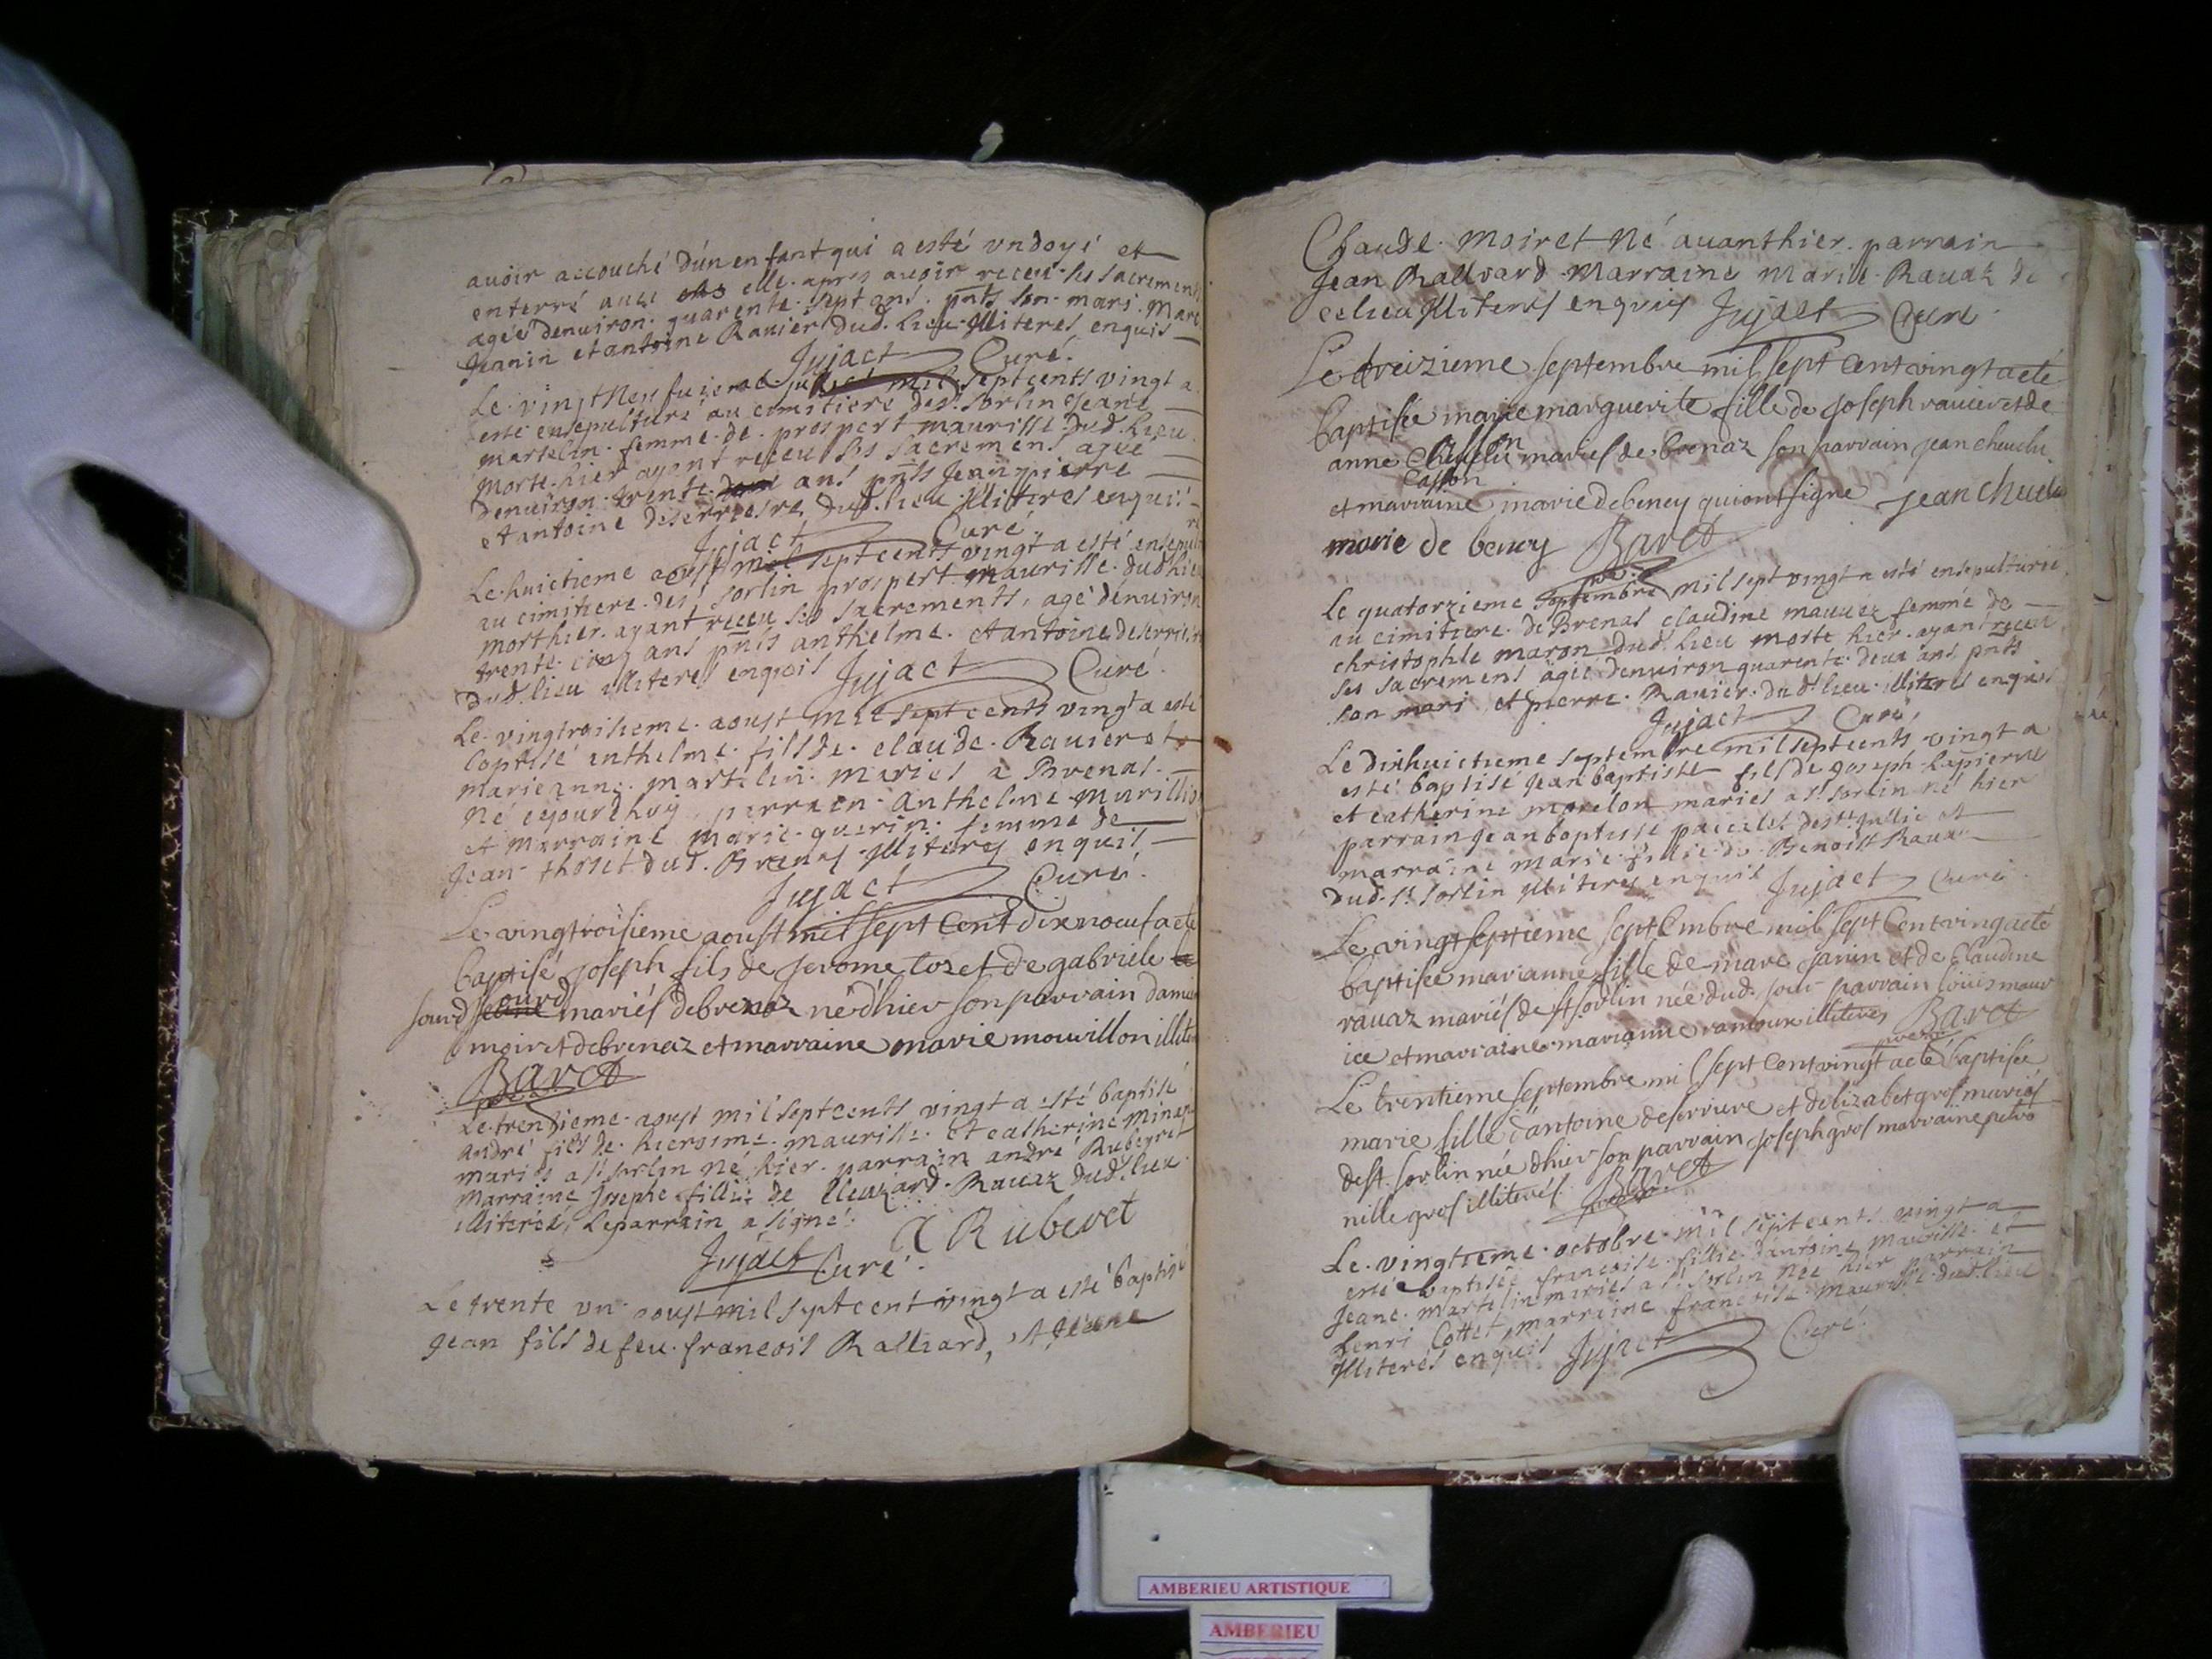 avoir accouché d'un enfant qui a esté undoyé et
enterré avec elle apres avoir receu ses sacrements
agée denviron quarente sept ans pnts son mari Marc
Jeanin et antoine Ravier dud. lieu illiteres enquis
Jujact Curé.
Le vingt neufuieme juliet mil sept cents vingt a
esté ensepulturé au cimitiere de st sorlin Jeane
martelin femme de prospert maurisse dud. lieu
morte hier ayant receu ses sacremens agée
denviron trente ans pnts Jean pierre
et antoine deserriere dud. lieu illiteres enquis
Jujact Curé
Le huictieme aoust mil sept cents vingt a esté ensepulturé
au cimitiere de st sorlin prospert maurisse dud lieu
mort hier ayant receu ses sacrements, agé denviron
trente cinq ans pnts anthelme et antoine deserriere
dud. lieu illiteres enquis Jujact Curé
Le vingtroisieme aoust mil sept cents vingt a esté
baptisé enthelme fils de claude Ravier et
marieanne martelin mariés a Brenas
né ejourdhuy, parrain Anthelme murillio
et marraine marie guerin femme de
Jean thoset dud. Brenas illiteres enquis
Jujact Curé
Le vingtroisieme aoust mil sept cent dix noeuf a eté
baptisé joseph fils de jerome toz et de gabriele
sourd mariés de brenaz né d'hier son parrain
moiret de brenaz et marraine marie mouvillon illite
Baret
Le trensieme aoust mil septcents vingt a esté baptisé
André fils de hierosme maurisse et catherine Miner
mariés a st sorlin né hier parrain andré Rubeyret
marraine Josephe fille de Eleuzard Ravaz dud. lieu
illiterée, le parrain a signé
A Rubevet
Jujact Curé
Le trente un aoust mil septcent vingt a esté baptisé
Jean fils de feu francois Ralliard, et Jeane
Claude moiret né avanthier parrain
Jean Rallvard marraine marie Ravaz de
ce lieu illiteres enquis Jujact Curé
Le treizieme septembre mil sept cent vingt a eté
baptisée marie marguerite fille de joseph ravier et de
anne mariés de brenaz son parrain jean cheuelu
Casson
et marraine marie de beney qui ont signe jean cheuelu
marie de beney Baret
Le quatorzieme septembre mil sept vingt a esté ensepulturée
au cimitiere de Brenas claudine mauuez femme de
christophle maron dud. lieu morte hier ayant receu
ses sacremens agée denviron quarente deux ans pnts
son mari et pierre Ravier dud. lieu illiteres enquis
Jujact Curé
Le dixhuictieme septembre mil septcents vingt a
esté baptisé Jean baptiste fils de Joseph lapierre
et catherine morelon mariés a st sorlin né hier
parrain Jean baptiste de st jullie et
marraine marie fillie de Benoist Ravaz
dud. st sorlin illiteres enquis Jujact Curé
Le vingt septieme septembre mil sept cent ving a eté
baptisée marianne fille de marc janin et de claudine
ravaz mariés de st sorlin née dud. jour parrain louis maur
ice et marraine marianne illiteres Baret
Le trentieme septembre mil sept cent vingt a eté baptisée
marie fille d'antoine deserriere et delizabet gros mariés
de st. sorlin née dhier son parrain joseph gros marraine petro
nille gros illiterés Baret
Le vingtieme octobre mil septcents vingt a
esté baptisée francoise fillie d'antoine maurisse et
Jeane martelin mariés a st sorlin née hier parrain
henri Cottet, marraine francoise maurisse dud. lieu
illiterés enquis Jujact Curé
AMBERIEU ARTISTIQUE
AMBERIEU